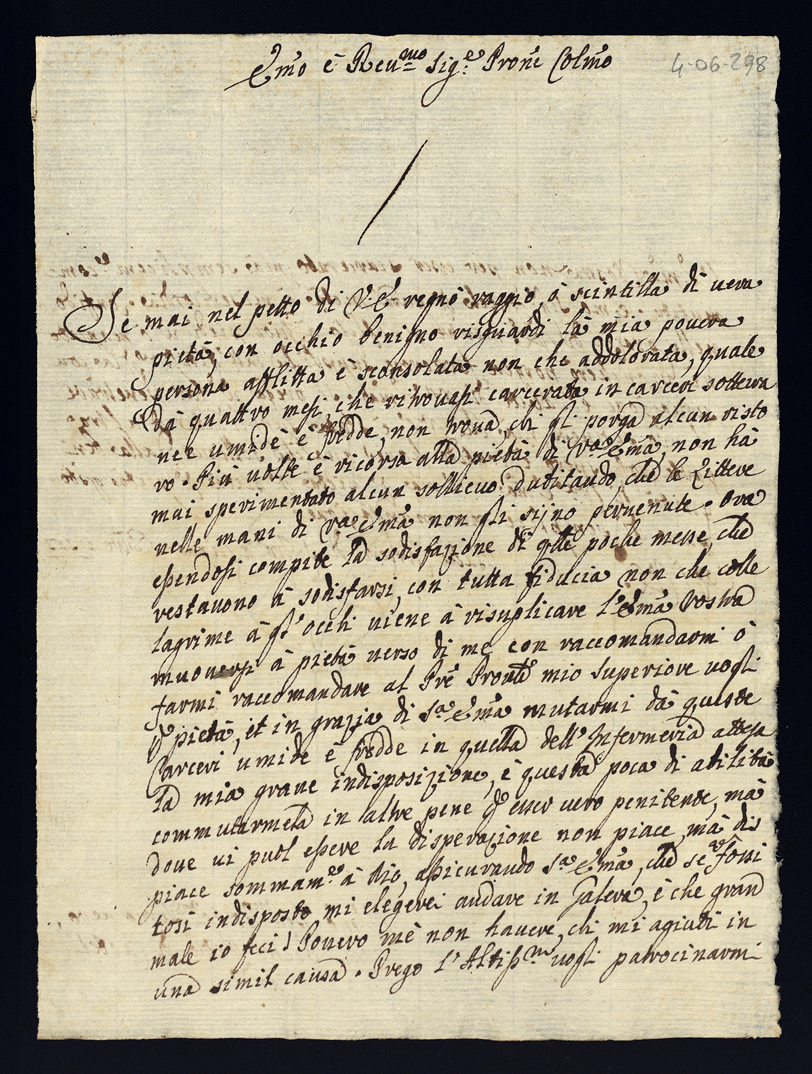 Emo è Reumo Sig.e Prone Colmo
4-06-298
Se mai nel petto di V.E. regnò raggio, ò scintilla di uera
pietà, con occhio benigno risguardi la mia pouera
persona afflitta e sconsolata non che addolorata, quale
dà quattro mesi, che ritrouasi carcerata in carceri sotterra
nee umide è fredde, non troua, chi gli porga alcun risto
ro. Più uolte è ricorsa alla pietà di Vra Ema, non hà
mai sperimentato alcun sollieuo dubitando, che le littere
nelle mani di Vra Ema non gli sijno peruenute. Ora
essendosi compite la sodisfazione di qlle poche messe, che
restauono à sodisfarsi, con tutta fiducia non che colle
lagrime à gl'occhi uiene à risuplicare l'Ema Vostra
muouersi à pietà uerso di me con raccomandarmi ò
farmi raccomandare al Pre Pronle mio superiore uogli
p pietà, et in grazia di Sa Ema mutarmi dà queste
Carceri umide è fredde in quella dell'Infermeria attesa
la mia graue indisposizione, è questa poca di abilità
commutarmela in altre pene p esser uero penitente, mà
doue ui puol essere la disperazione non piace, mà dis
piace sommame à dio, assicurando Sa Ema, che se fossi
tosi indisposto mi elegerei andare in galera, è che gran
male io feci! Pouero mè non hauere, chi mi agiuti in
una simil causa. Prego l'Altissmo uogli patrocinarmi